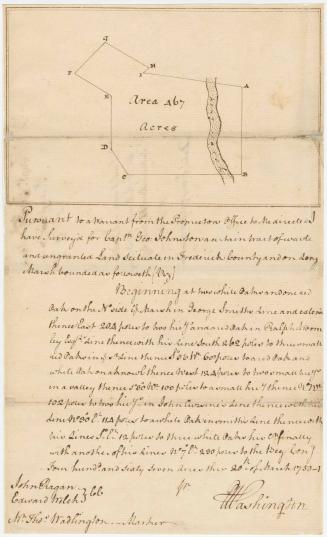 G
H
I
F
A
Area 467
Acres
E
D
C
B
Pursuant to a Warrant from the Proprietors Office to Me directed I
have Survey'd for Captn Geo: Johnston a certain tract of waste
and ungranted Land Situate in Frederick County and on Long
Marsh bounded as followeth
Beginning at two white Oaks and one red
Oak on the No. side of Marsh in George Smiths Line and
thence East 202 poles to two and a red Oak in Ralph Worm
ley Esqrs. Line thence with his Line South 262 poles to three small
red Oaks in Line thence 60 poles to a red Oak and
white Oak on a knowl thence West 124 poles to two small
in a valley thence So 50 Wt. 100 poles to a small thence
102 poles to two in John Line thence with
Line No. 114 poles to a white Oak in Line thence with
his Lines 12 poles to three white Oaks his finally
with another of his Lines 230 poles to the Beg
Four hundred Sixty Seven Acres this 20th of March
John Ragan
Edward Welch CC
pr
GWashington
Mr Thos. Wadlington Marker